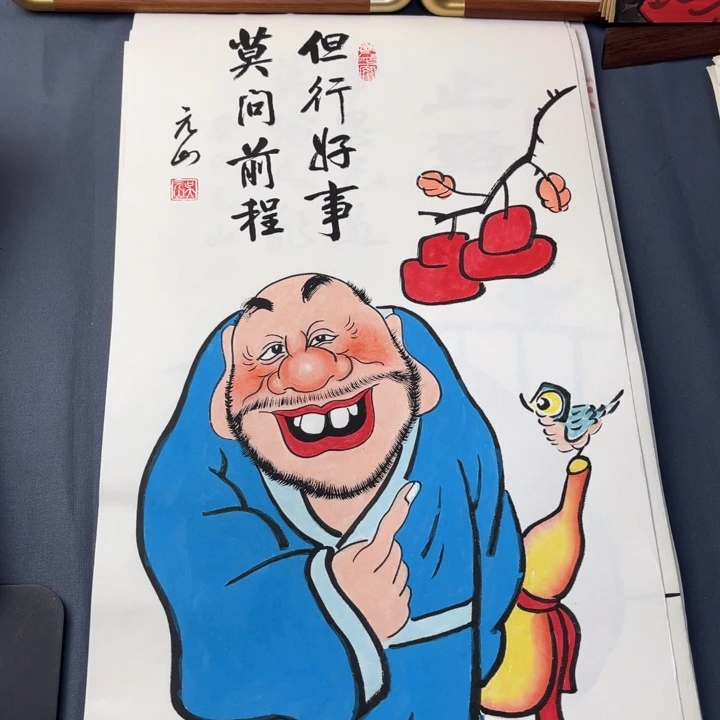 但行好事
莫问前程
元山